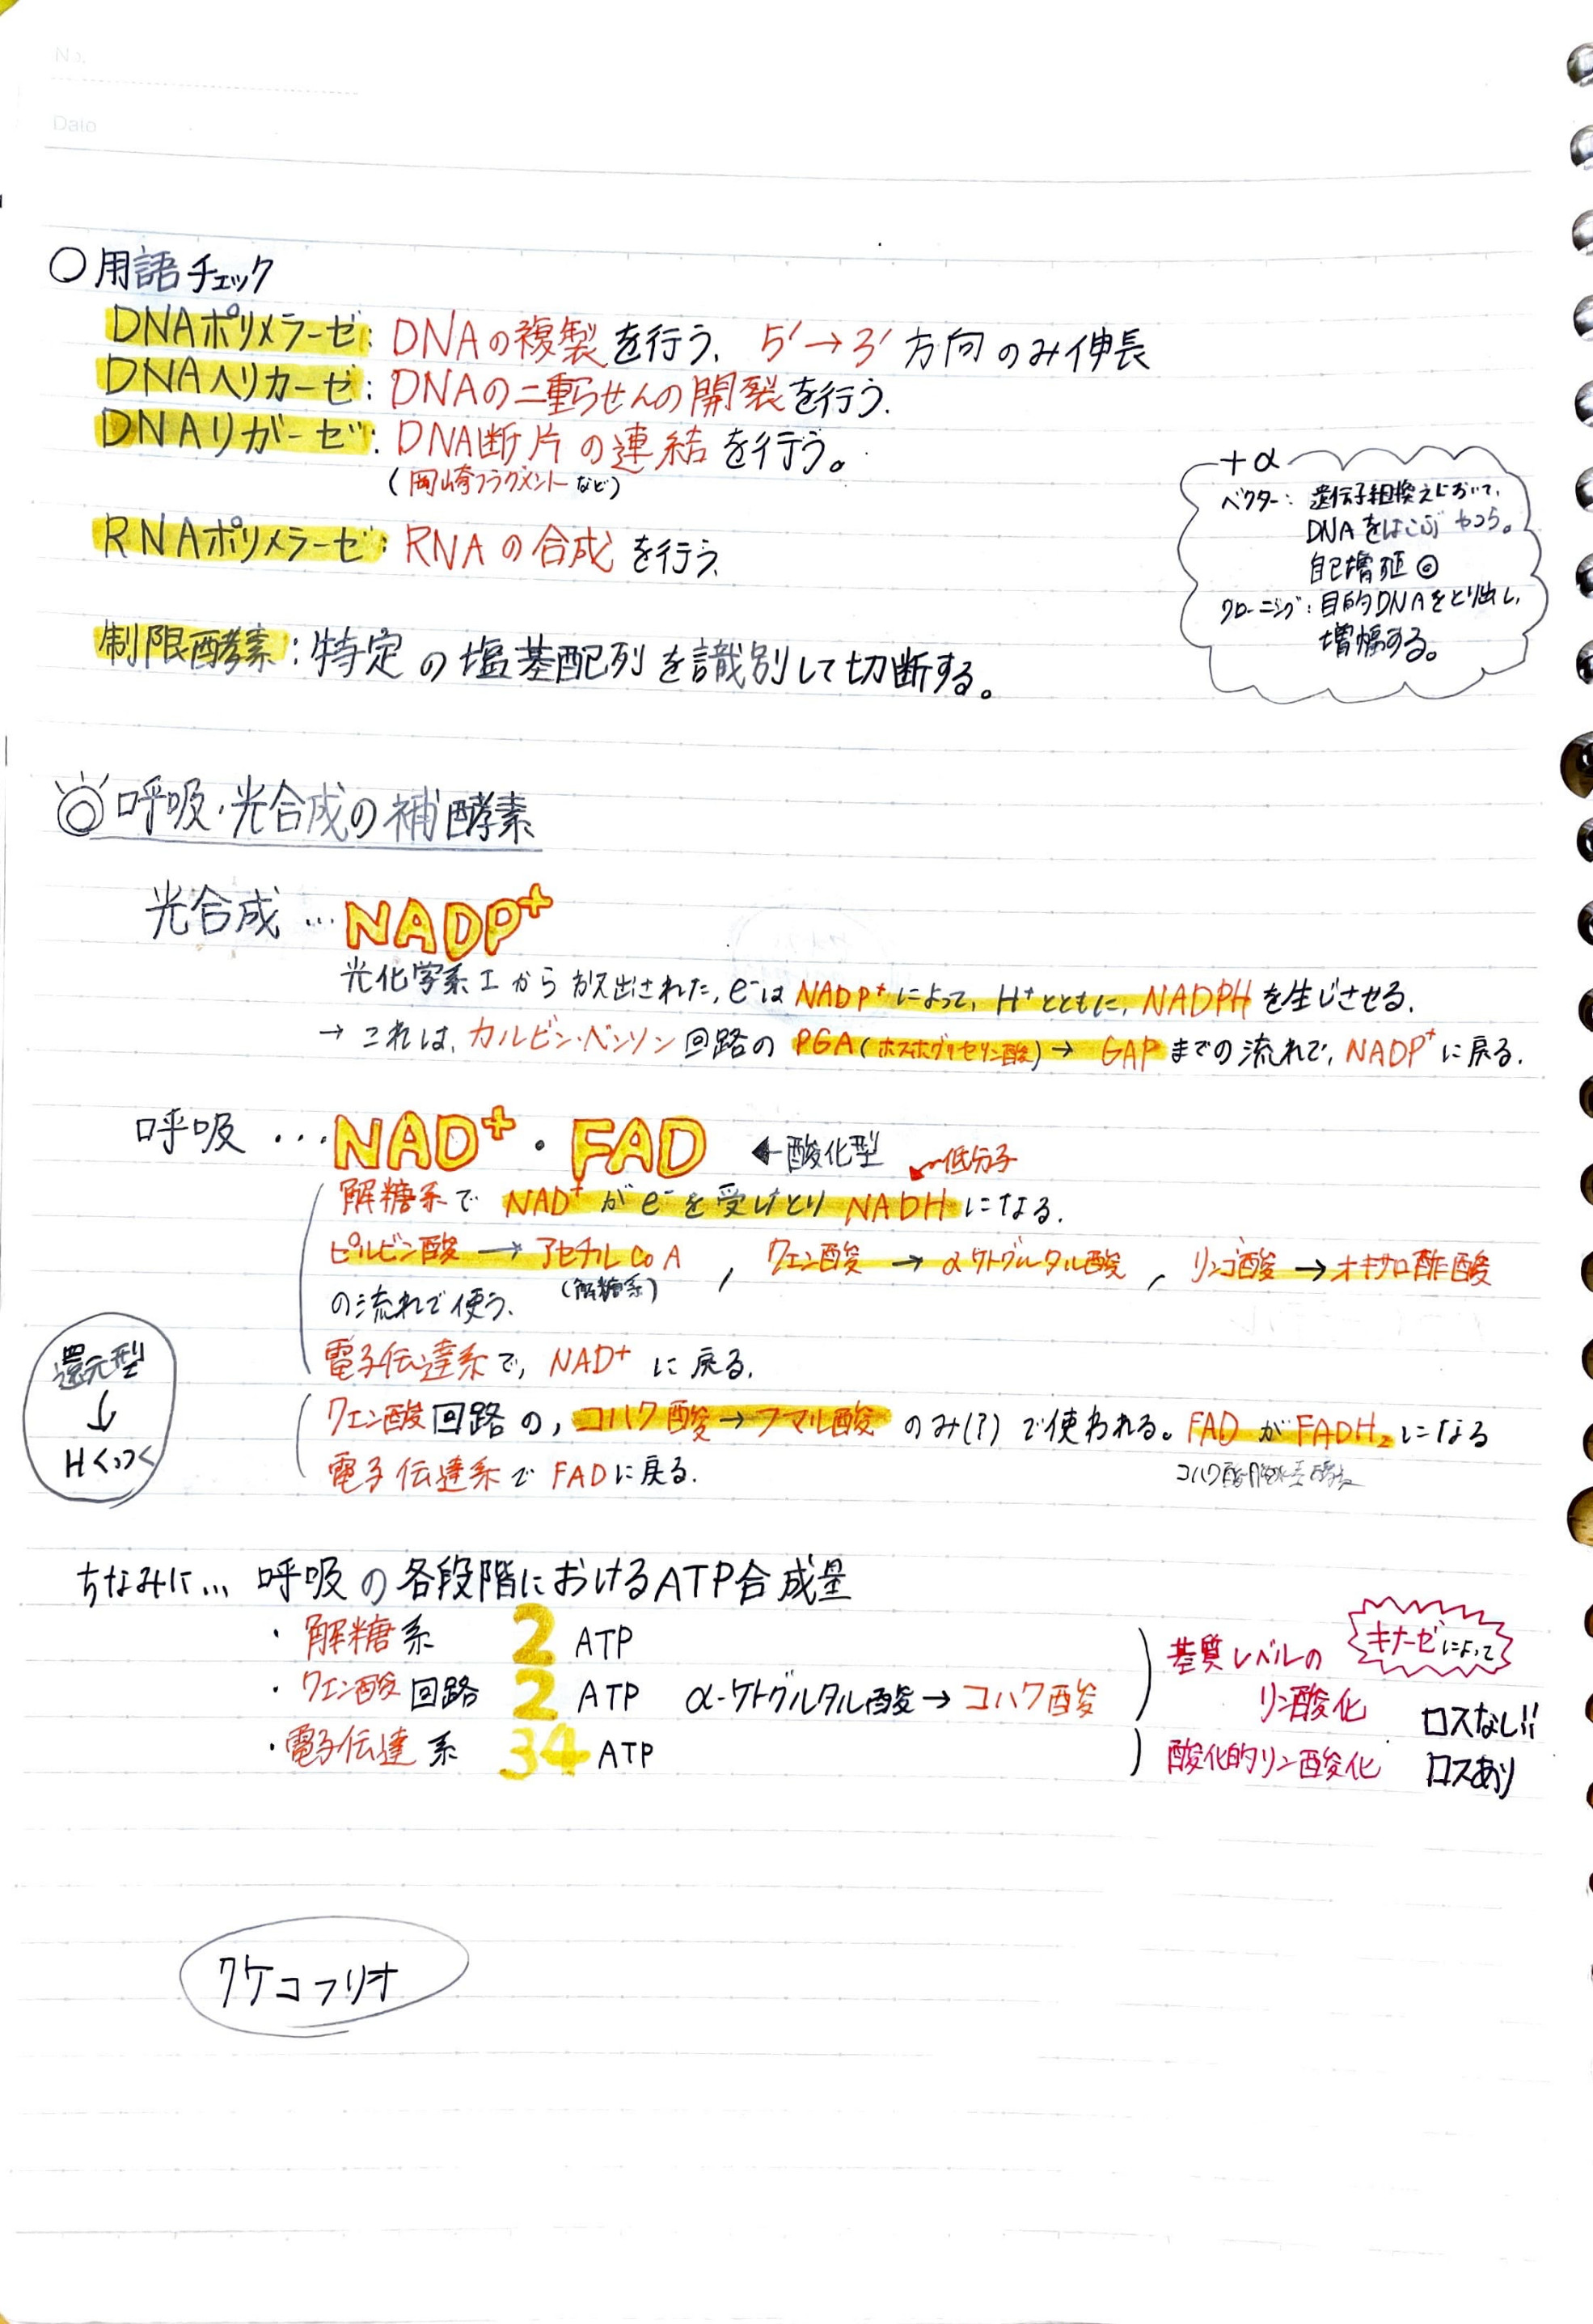 No.
Date
○用語チェック
DNAポリメラーゼ：DNAの複製を行う。5'→3'方向のみ伸長
DNAヘリカーゼ：DNAの二重らせんの開裂を行う。
DNAリガーゼ：DNA断片の連結を行う。
(岡崎フラグメントなど)
RNAポリメラーゼ：RNAの合成を行う。
制限酵素：特定の塩基配列を識別して切断する。
+α
ベクター：遺伝子組換えにおいて、
DNAをはこぶやつら。
自己増殖◎
クローニング：目的DNAをとり出し、
増幅する。
◎呼吸・光合成の補酵素
光合成…NADP⁺
光化学系Ⅰから放出された、e⁻はNADP⁺によって、H⁺とともに、NADPHを生じさせる。
→これは、カルビン・ベンソン回路のPGA(ホスホグリセリン酸)→GAPまでの流れで、NADP⁺に戻る。
呼吸…NAD⁺・FAD ←酸化型
低分子
解糖系でNAD⁺がe⁻を受けとりNADHになる。
ピルビン酸→アセチルCoA，クエン酸→αケトグルタル酸，リンゴ酸→オキサロ酢酸
(解糖系)
の流れで使う。
電子伝達系で，NAD⁺に戻る。
還元型
↓
Hくっつく
クエン酸回路の，コハク酸→フマル酸のみ(?)で使われる。FADがFADH₂になる
コハク酸脱水素酵素
電子伝達系でFADに戻る。
ちなみに…呼吸の各段階におけるATP合成量
・解糖系 2 ATP
・クエン酸回路 2 ATP α-ケトグルタル酸→コハク酸
・電子伝達系 34 ATP
基質レベルの
リン酸化
キナーゼによって
ロスなし!!
酸化的リン酸化 ロスあり
クケコフリオ